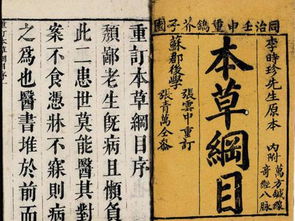 同治壬申重鐫芥子園
李時珍先生原本
內附 萬方鍼線 奇經八脈
本草綱目
蘇郡後學
張雲中重訂
張青萬仝叅
重訂本草綱目序
頹鄙老生旣病且懶負
此二患世莫能醫其對
案不食憑牀不寐則病
之爲也醫書堆於前而